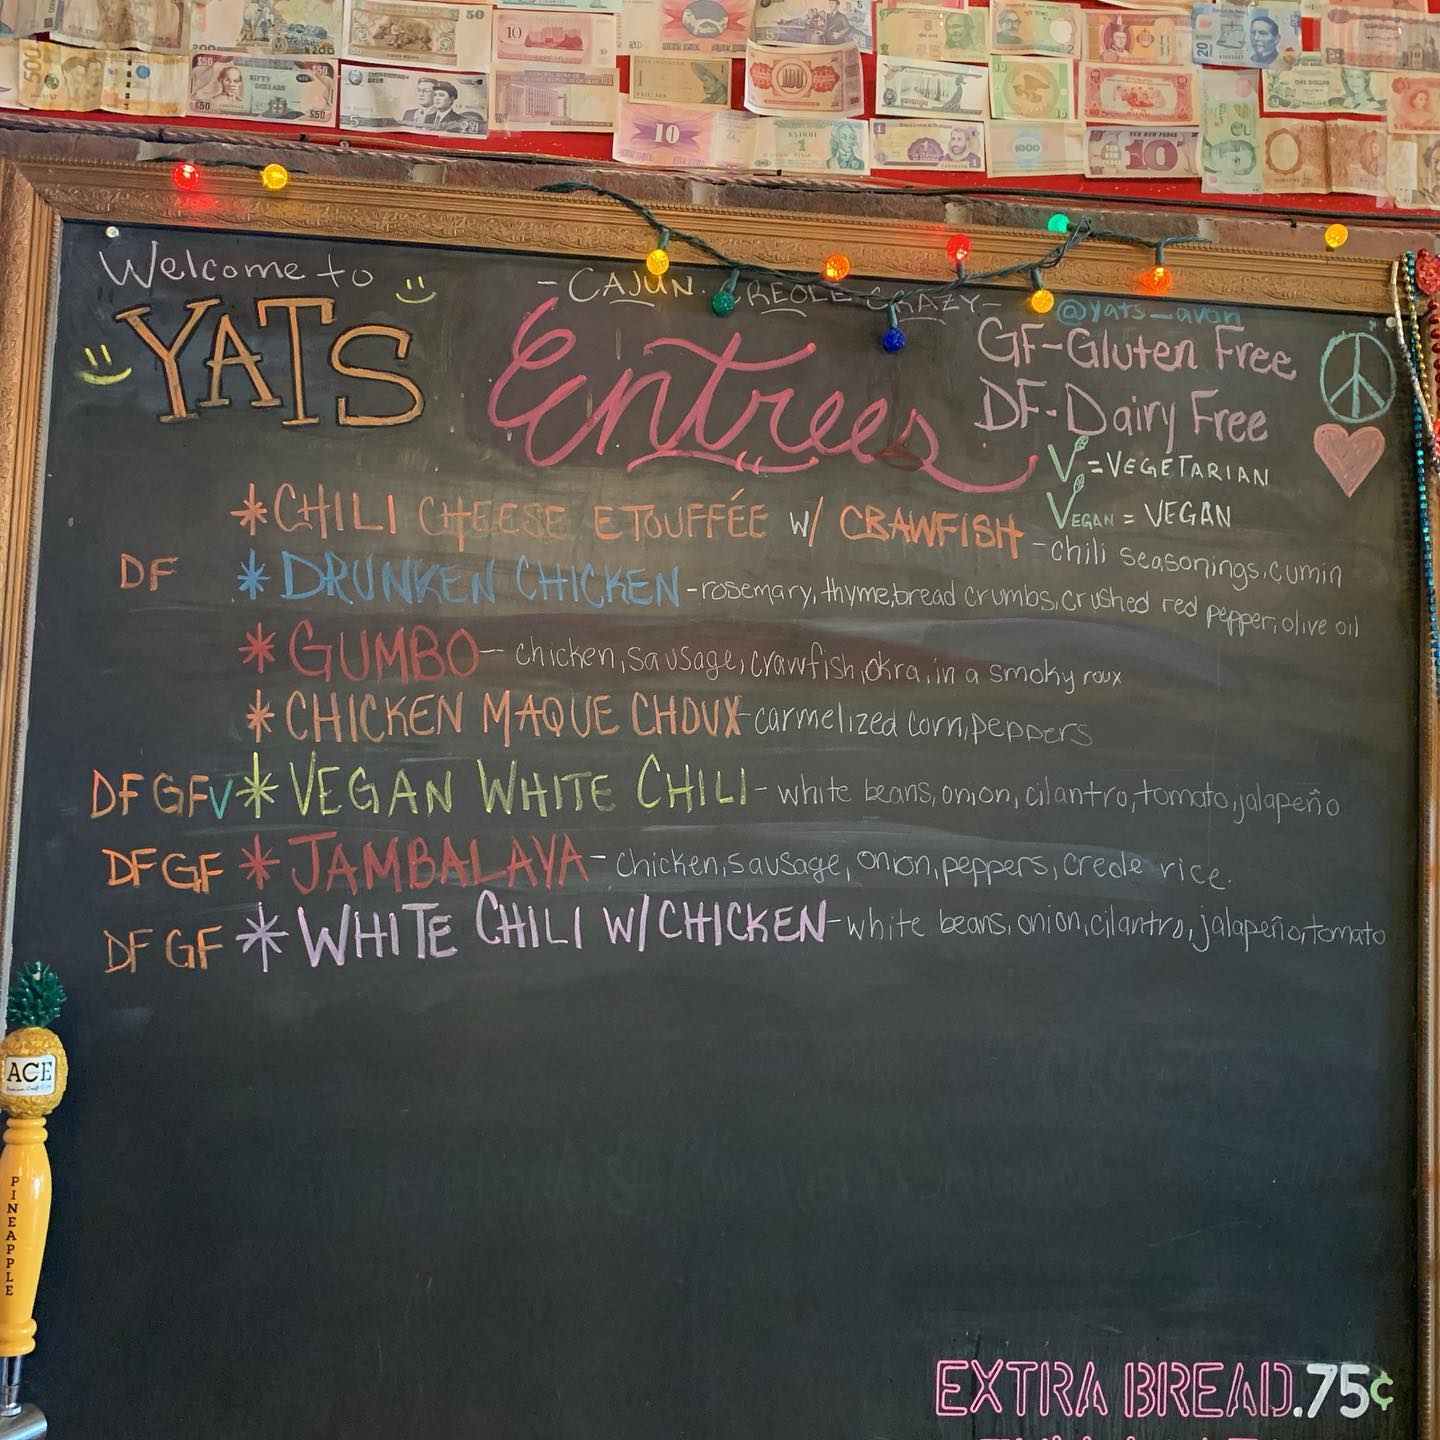 Welcome to
YATS
-CAJUN. CREOLE CRAZY-
Entrees
@yats_avon
GF-Gluten Free
DF-Dairy Free
V=VEGETARIAN
VEGAN = VEGAN
*CHILI CHEESE ETOUFFÉE w/ CRAWFISH -chili seasonings,cumin
DF *DRUNKEN CHICKEN-rosemary,thyme,bread crumbs,crushed red pepper,olive oil
*GUMBO- chicken,sausage,crawfish,okra,in a smoky roux
*CHICKEN MAQUE CHOUX-carmelized corn,peppers
DF GFV*VEGAN WHITE CHILI- white beans,onion,cilantro,tomato,jalapeño
DFGF *JAMBALAYA- chicken,sausage,onion,peppers,creole rice.
DF GF *WHITE CHILI W/CHICKEN-white beans,onion,cilantro,jalapeño,tomato
ACE
PINEAPPLE
EXTRA BREAD.75¢